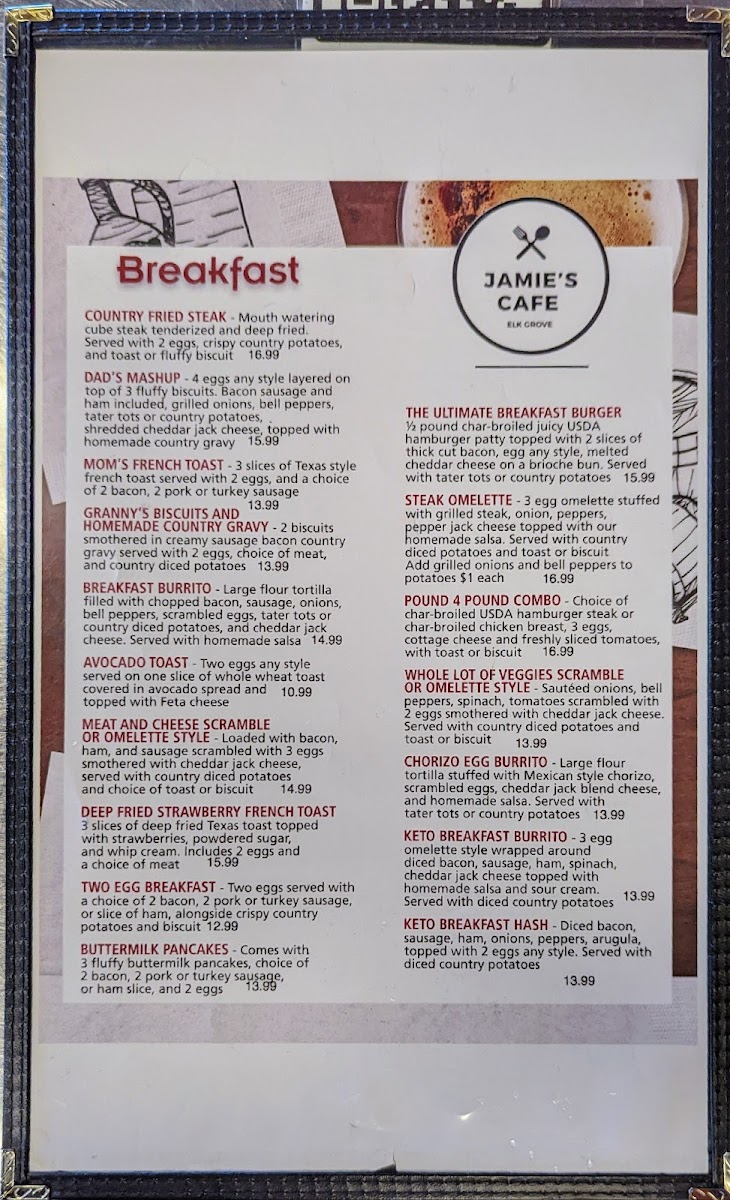 Breakfast
COUNTRY FRIED STEAK - Mouth watering
cube steak tenderized and deep fried.
Served with 2 eggs, crispy country potatoes,
and toast or fluffy biscuit 16.99
DAD'S MASHUP - 4 eggs any style layered on
top of 3 fluffy biscuits. Bacon sausage and
ham included, grilled onions, bell peppers,
tater tots or country potatoes,
shredded cheddar jack cheese, topped with
homemade country gravy 15.99
MOM'S FRENCH TOAST - 3 slices of Texas style
french toast served with 2 eggs, and a choice
of 2 bacon, 2 pork or turkey sausage
13.99
GRANNY'S BISCUITS AND
HOMEMADE COUNTRY GRAVY - 2 biscuits
smothered in creamy sausage bacon country
gravy served with 2 eggs, choice of meat,
and country diced potatoes 13.99
BREAKFAST BURRITO - Large flour tortilla
filled with chopped bacon, sausage, onions,
bell peppers, scrambled eggs, tater tots or
country diced potatoes, and cheddar jack
cheese. Served with homemade salsa 14.99
AVOCADO TOAST - Two eggs any style
served on one slice of whole wheat toast
covered in avocado spread and 10.99
topped with Feta cheese
MEAT AND CHEESE SCRAMBLE
OR OMELETTE STYLE - Loaded with bacon,
ham, and sausage scrambled with 3 eggs
smothered with cheddar jack cheese,
served with country diced potatoes
and choice of toast or biscuit 14.99
DEEP FRIED STRAWBERRY FRENCH TOAST
3 slices of deep fried Texas toast topped
with strawberries, powdered sugar,
and whip cream. Includes 2 eggs and
a choice of meat 15.99
TWO EGG BREAKFAST - Two eggs served with
a choice of 2 bacon, 2 pork or turkey sausage,
or slice of ham, alongside crispy country
potatoes and biscuit 12.99
BUTTERMILK PANCAKES - Comes with
3 fluffy buttermilk pancakes, choice of
2 bacon, 2 pork or turkey sausage,
or ham slice, and 2 eggs 13.99
JAMIE'S
CAFE
ELK GROVE
THE ULTIMATE BREAKFAST BURGER
½ pound char-broiled juicy USDA
hamburger patty topped with 2 slices of
thick cut bacon, egg any style, melted
cheddar cheese on a brioche bun. Served
with tater tots or country potatoes 15.99
STEAK OMELETTE - 3 egg omelette stuffed
with grilled steak, onion, peppers,
pepper jack cheese topped with our
homemade salsa. Served with country
diced potatoes and toast or biscuit
Add grilled onions and bell peppers to
potatoes $1 each 16.99
POUND 4 POUND COMBO - Choice of
char-broiled USDA hamburger steak or
char-broiled chicken breast, 3 eggs,
cottage cheese and freshly sliced tomatoes,
with toast or biscuit 16.99
WHOLE LOT OF VEGGIES SCRAMBLE
OR OMELETTE STYLE - Sautéed onions, bell
peppers, spinach, tomatoes scrambled with
2 eggs smothered with cheddar jack cheese.
Served with country diced potatoes and
toast or biscuit 13.99
CHORIZO EGG BURRITO - Large flour
tortilla stuffed with Mexican style chorizo,
scrambled eggs, cheddar jack blend cheese,
and homemade salsa. Served with
tater tots or country potatoes 13.99
KETO BREAKFAST BURRITO - 3 egg
omelette style wrapped around
diced bacon, sausage, ham, spinach,
cheddar jack cheese topped with
homemade salsa and sour cream.
Served with diced country potatoes 13.99
KETO BREAKFAST HASH - Diced bacon,
sausage, ham, onions, peppers, arugula,
topped with 2 eggs any style. Served with
diced country potatoes
13.99